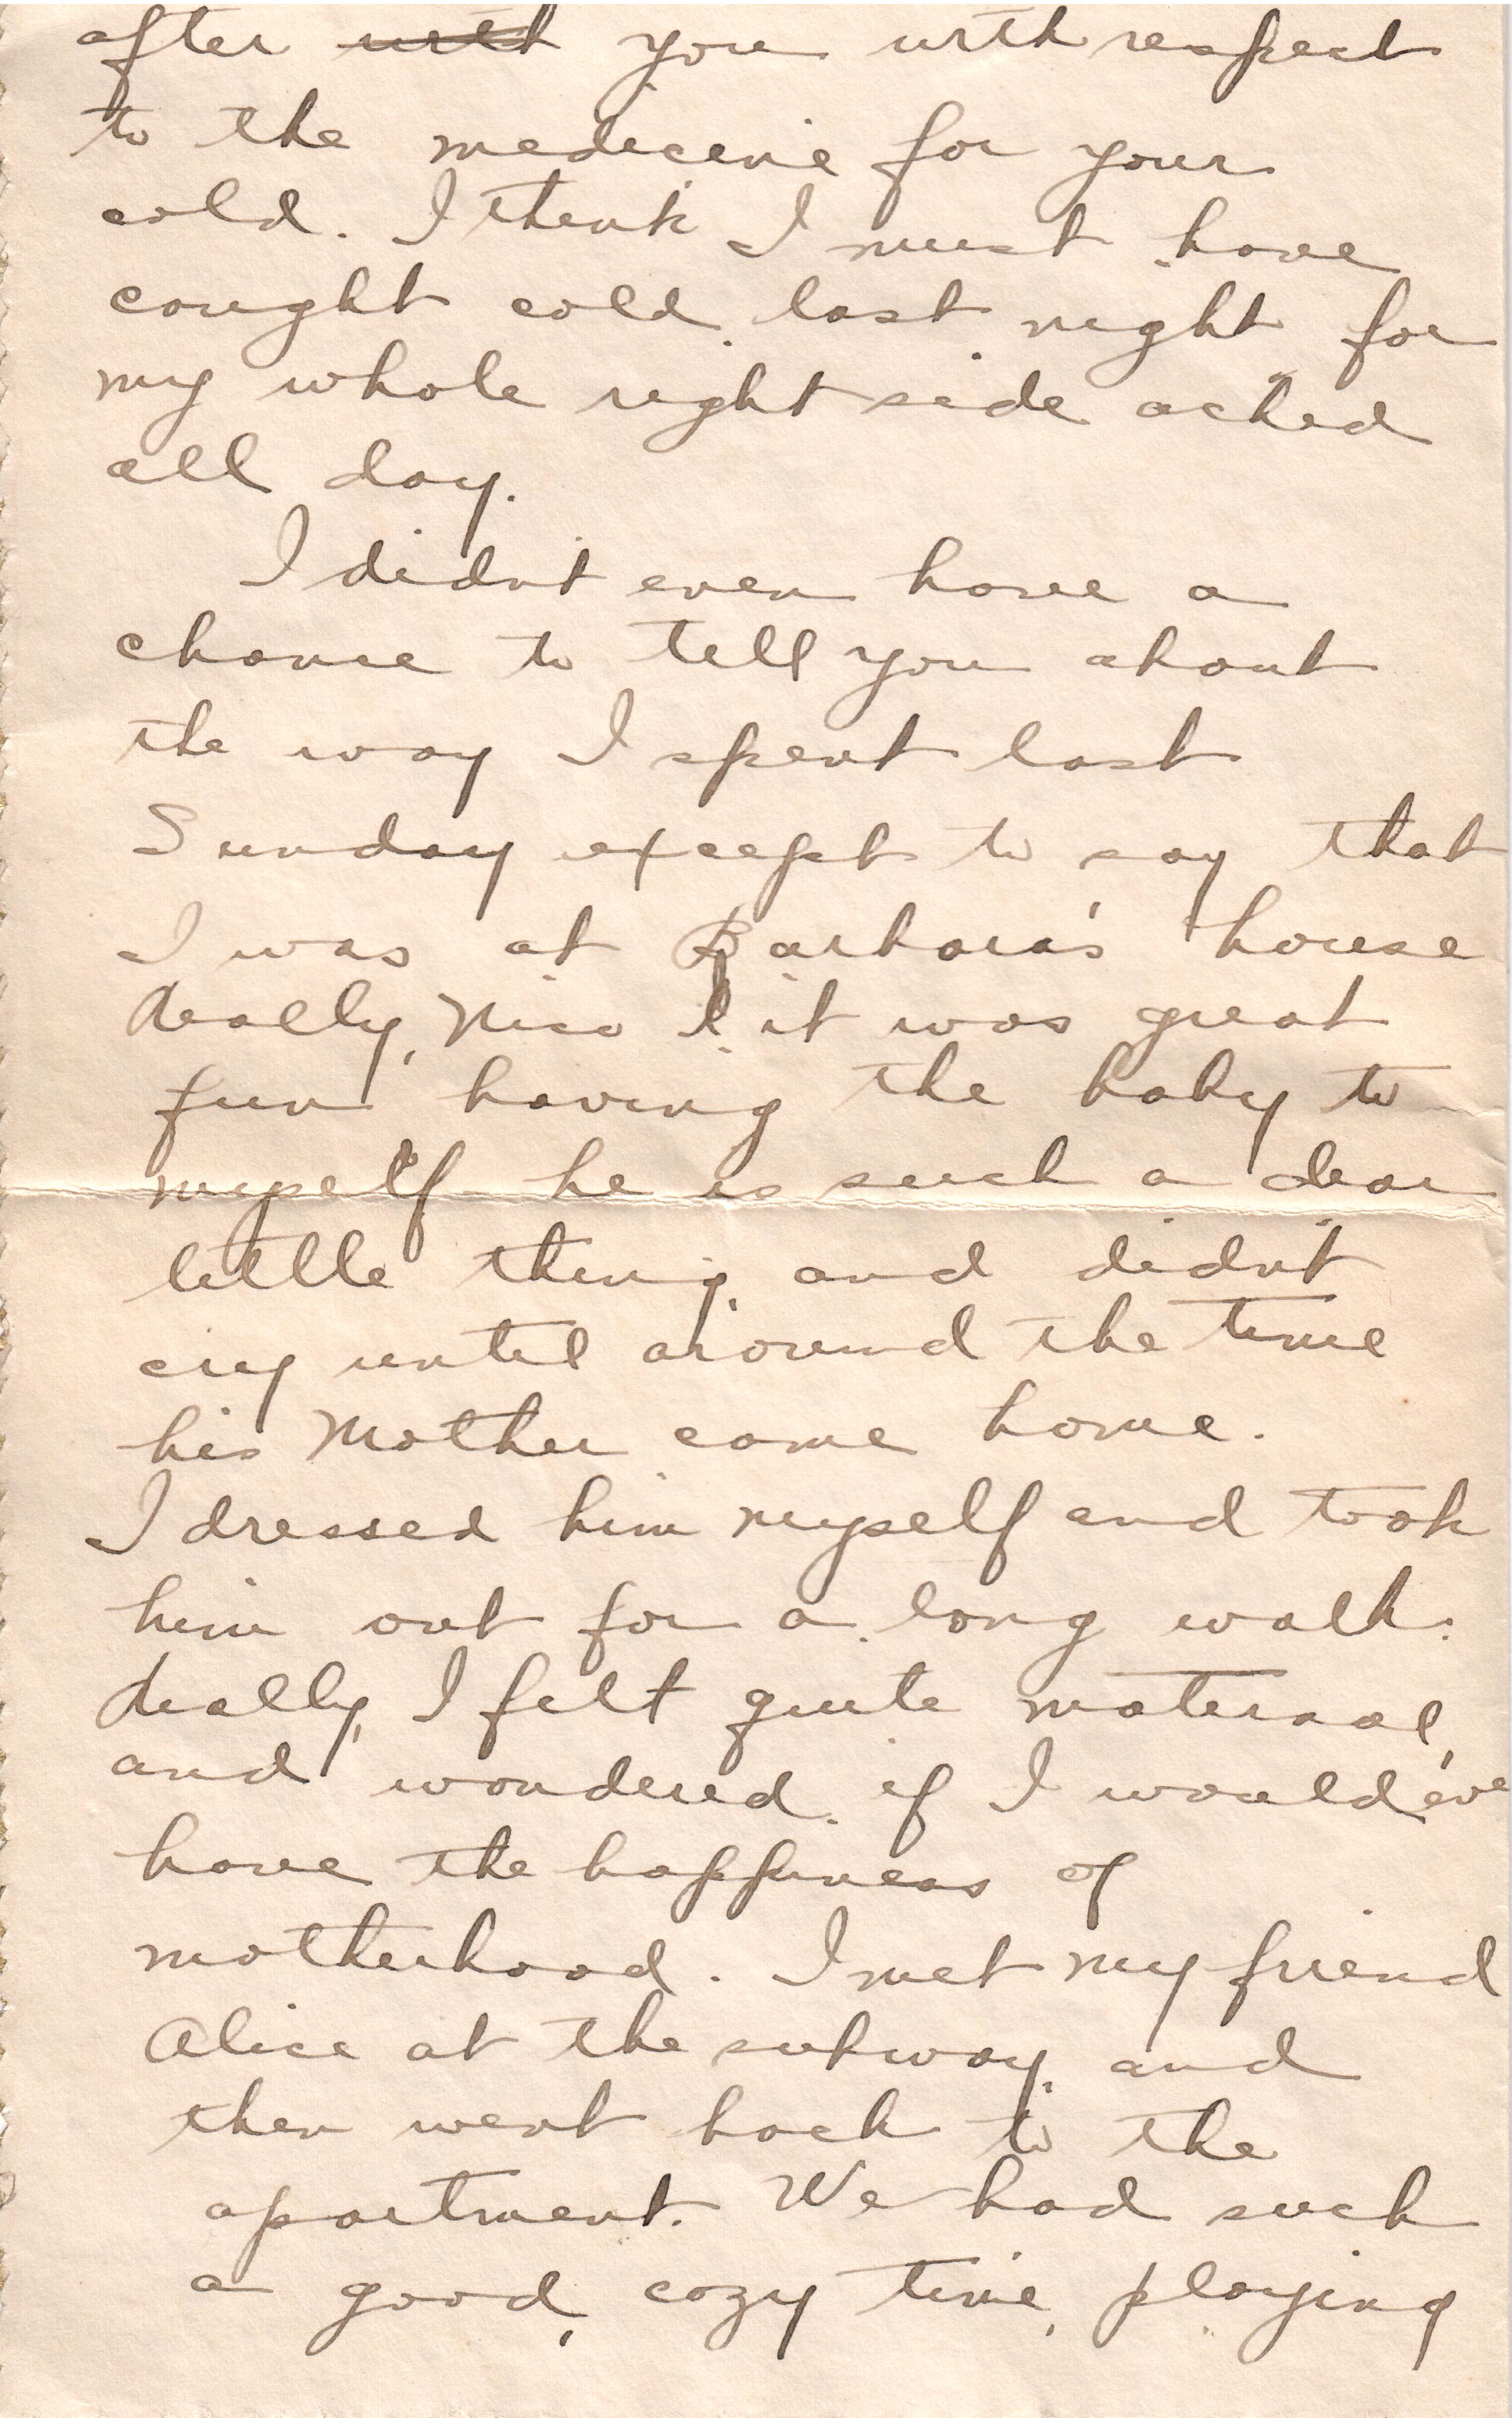 after with you with respect
to the medicine for your
cold. I think I must have
caught cold last night for
my whole right side ached
all day.
I didn't even have a
chance to tell you about
the way I spent last
Sunday except to say that
I was at Barbara's house
Really, Nico it was great
fun having the baby to
myself he is such a dear
little thing, and didn't
cry until around the time
his Mother came home.
I dressed him myself and took
him out for a long walk.
Really, I felt quite maternal,
and wondered if I would eve
have the happiness of
motherhood. I met my friend
Alice at the subway, and
then went back to the
apartment. We had such
a good, cozy time, playing